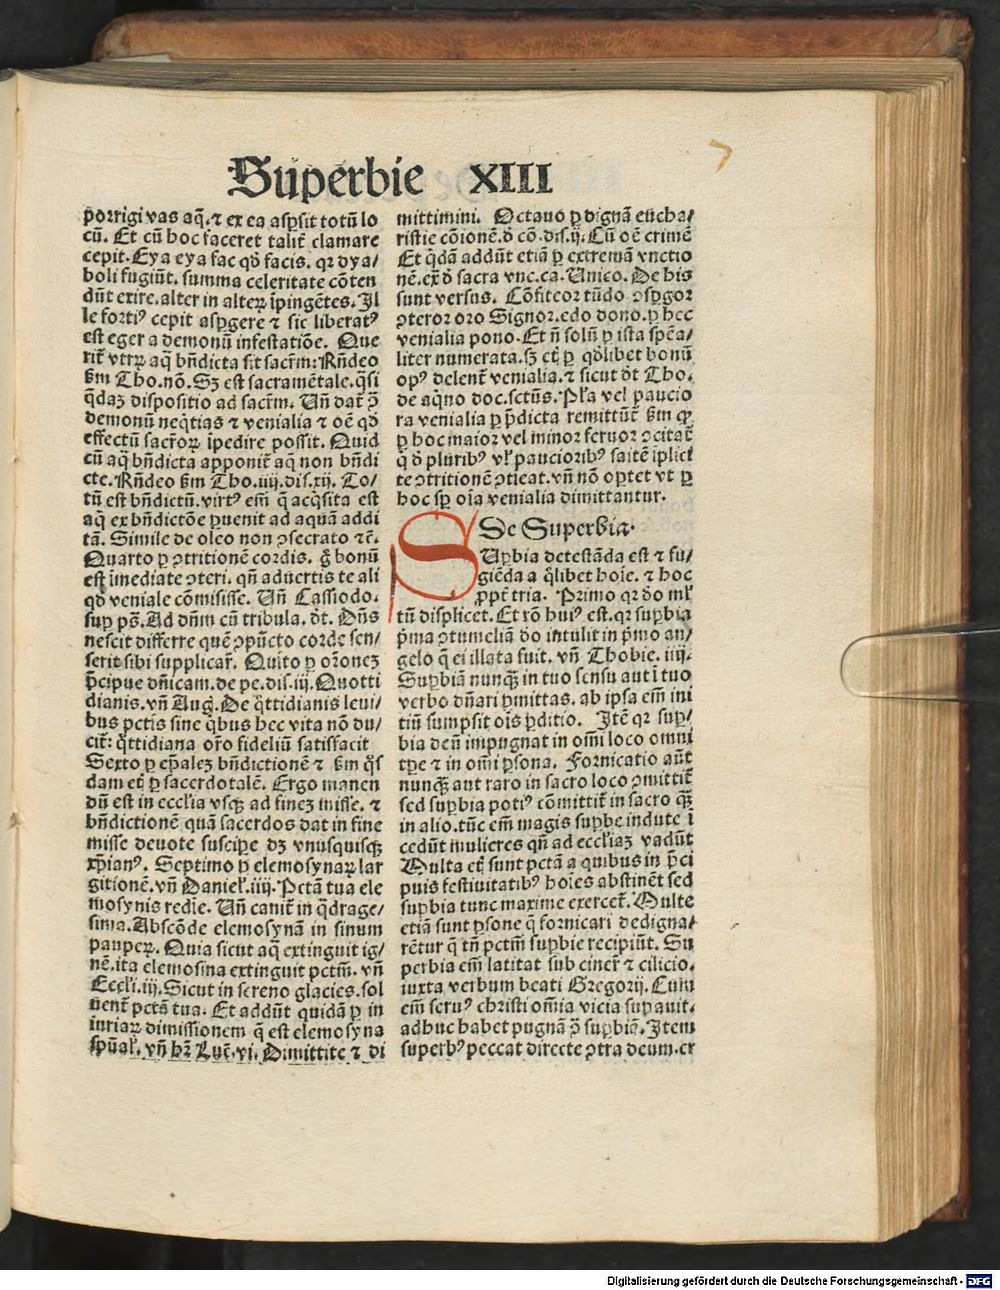 Superbie XIII
porrigi vas aq̃. ⁊ ex ea asp̲sit totū lo
cū. Et cū hoc faceret talit̃ clamare
cepit. Eya eya fac qď facis. qꝛ dya/
boli fugiūt. summa celeritate cōten
dūt exire. alter in alteꝝ īpingētes. Il
le fortiꝰ cepit asꝑgere ⁊ sic liberatꝰ
est eger a demonū infestatiōe. Que
rit̃ vtꝝ aq̃ bñdicta sit sacr̃m: Rñdeo
ẜm Tho. nō. Sꝫ est sacramētale. q̃si
q̃daꝫ dispositio ad sacr̃m. Uñ dat̃ ↄ̃
demonū neq̇tias ⁊ venialia ⁊ oē qď
effectū sacr̃oꝝ īpedire possit. Quid
cū aq̃ bñdicta apponit̃ aq̃ non bñdi
cte. Rñdeo ẜm Tho. iiij. dis. xij. To/
tū est bñdictū. virtꝰ em̄ q̃ acq̇sita est
aq̃ ex bñdictōe ꝓuenit ad aquā addi
tā. Simile de oleo non ↄsecrato ⁊ē.
Quarto ꝑ ↄtritionē cordis. g̊ bonū
est īmediate ↄteri. qñ aduertis te ali
qď veniale cōmisisse. Uñ Cassiodo.
suꝑ ps̄. Ad dñm cū tribula. ďt. Dñs
nescit differre quē ↄpūcto corde sen/
serit sibi supplicar̃. Quīto ꝑ or̃oneꝫ
p̄cipue dñicam. de pe. dis. iij. Quotti
dianis. vñ Aug̃. De q̊ttidianis leui/
bus pctis sine q̇bus hec vita nō du/
cit̃: q̊ttidiana or̃o fideliū satisfacit
Sexto ꝑ ep̄aleꝫ bñdictionē ⁊ ẜm q̊s
dam etiꝫ ꝑ sacerdotalē. Ergo manen
dū est in eccl̃ia vsqꝫ ad fineꝫ misse. ⁊
bñdictionē quā sacerdos dat in fine
misse deuote suscipe dꝫ vnusquisqꝫ
xp̄ianꝰ. Septimo ꝑ elemosynaꝝ lar
gitionē. vñ Daniel̃. iiij. Pctā tua ele
mosynis redīe. Uñ canit̃ in q̃drage/
sima. Abscōde elemosynā in sinum
pauꝑeꝝ. Quia sicut aq̃ extinguit ig/
nē. ita elemosina extinguit pctm̄. vñ
Eccl̃i. iij. Sicut in sereno glacies. sol
uent̃ pctā tua. Et addūt quidā ꝑ in
iuriaꝝ dimissionem q̃ est elemosyna
sp̄ual̃. vñ hr̃ Luc̃. vi. Dimittite ⁊ di
mittimini. Octauo ꝑ dignā eucha/
ristie cōionē. ď cō. dis. ij. Cū oē crimē
Et q̇dā addūt etiā ꝑ extremā vnctio
nē. ex̃ ď sacra vnc. ca. Unico. De his
sunt versus. Cōfiteor tūdo ↄsꝑgor
ↄteror oro Signor. edo dono. ꝑ hec
venialia pono. Et ñ solū ꝑ ista sp̄ea/
liter numerata. sꝫ etiꝫ ꝑ qďlibet bonū
opꝰ delent̃ venialia. ⁊ sicut ďt Tho.
de aq̇no doc. sctūs. Pl̃a vel paucio
ra venialia ꝑ p̄dicta remittūt̃ ẜm qꝙ
ꝑ hoc maior vel minor feruor ↄcitat̃
q̇ ď pluribꝰ vl̃ paucioribꝰ saltē īplici
te ↄtritionē ↄtieat. vñ nō oꝑtet vt ꝑ
hoc sꝑ oīa venialia dimittantur.
De Superbia.
SUꝑbia detestāda est ⁊ fu/
giēda a q̊libet hoīe. ⁊ hoc
ꝓpt̃ tria. Primo qꝛ ďo ml̃
tū displicet. Et rō huiꝰ est. qꝛ suꝑbia
p̄ma ↄtumeliā ďo intulit in p̄mo an/
gelo q̃ ei illata fuit. vñ Thobie. iiij.
Suꝑbiā nunqꝫ̃ in tuo sensu aut ī tuo
verbo dñari ꝑmittas. ab ipsa em̄ ini
tiū sumpsit oīs ꝑditio. Itē qꝛ suꝑ/
bia deū impugnat in om̄i loco omni
tꝑe ⁊ in om̄i ꝑsona. Fornicatio aūt
nunqꝫ̃ aut raro in sacro loco ↄmittit̃
sed suꝑbia potiꝰ cōmittit̃ in sacro qꝫ̃
in alio. tūc em̄ magis suꝑbe indute ī
cedūt mulieres qñ ad eccl̃iaꝫ vadūt
Multa etiꝫ sunt pctā a quibus in p̄ci
puis festiuitatibꝰ hoīes abstinēt sed
suꝑbia tunc maxime exercet̃. Multe
etiā sunt ꝑsone q̃ fornicari dedigna/
rētur q̃ tñ pctm̄ suꝑbie recipiūt. Su
perbia em̄ latitat sub ciner̃ ⁊ cilicio.
iuxta verbum beati Gregorij. Cum
em̄ seruꝰ christi om̄ia vicia suꝑauit.
adhuc habet pugnā ↄ̃ suꝑbiā. Item
superbꝰ peccat directe ↄtra deum. er
Digitalisierung gefördert durch die Deutsche Forschungsgemeinschaft - DFG